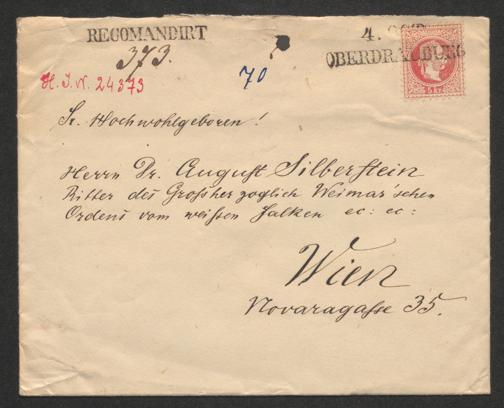 RECOMANDIRT
4. OCT
OBERDRAUBURG
373.
70
H. I. N. 24373
Sr. Hochwohlgeboren!
Herrn Dr. August Silberstein
Ritter des Großherzoglich Weimar'schen
Ordens vom weißen Falken ec: ec:
Wien
Novaragasse 35.